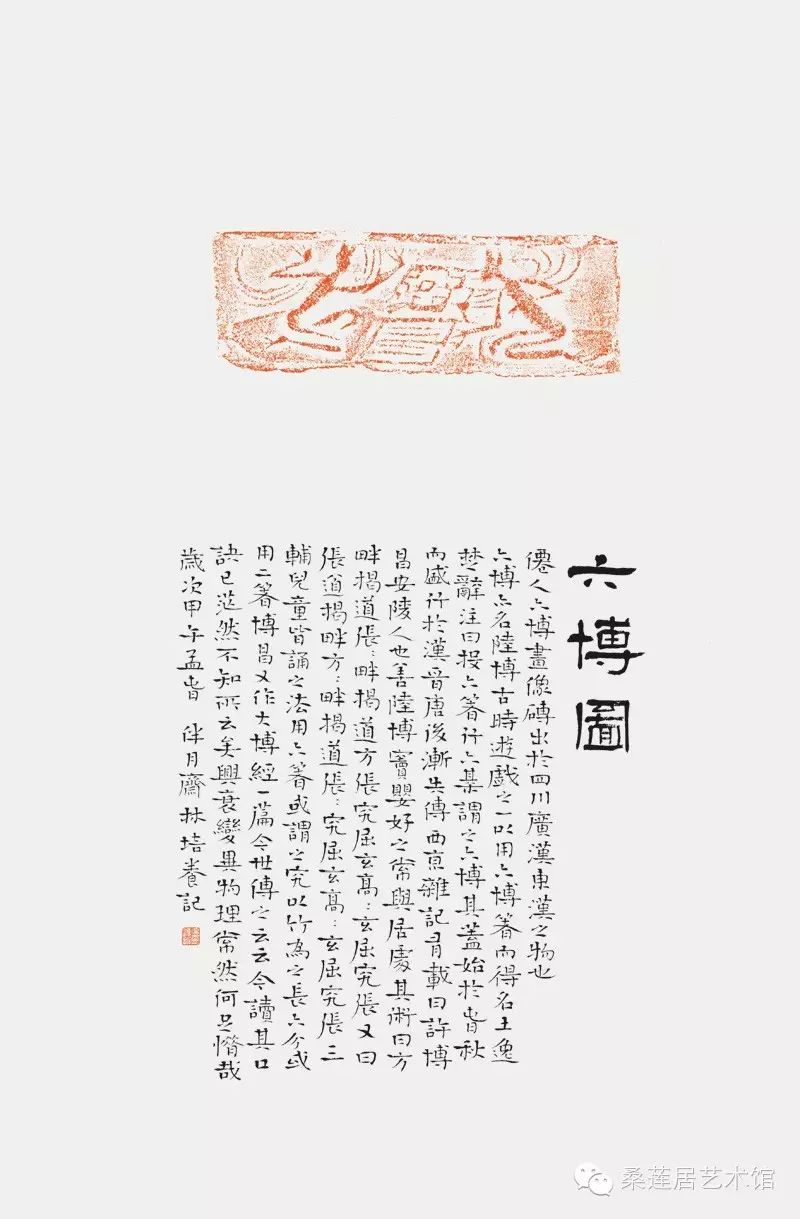 六博圖
僊人六博畫像磚出於四川廣漢東漢之物也
六博亦名陸博古時遊戲之一以用六博箸而得名王逸
楚辭注曰投六箸行六棊謂之六博其蓋始於春秋
而盛行於漢晉唐後漸失傳西京雜記有載曰許博
昌安陵人也善陸博竇嬰好之常與居處其術曰方
畔揭道張〻畔揭道方張究屈玄高〻玄屈究張又曰
張道揭畔方〻畔揭道張〻究屈玄高〻玄屈究張三
輔兒童皆誦之法用六箸或謂之究以竹為之長六分或
用二箸博昌又作大博經一篇今世傳之云云今讀其口
訣已茫然不知所云矣興衰變異物理常然何足惜哉
歲次甲午孟春 伴月齋林培養記
桑莲居艺术馆